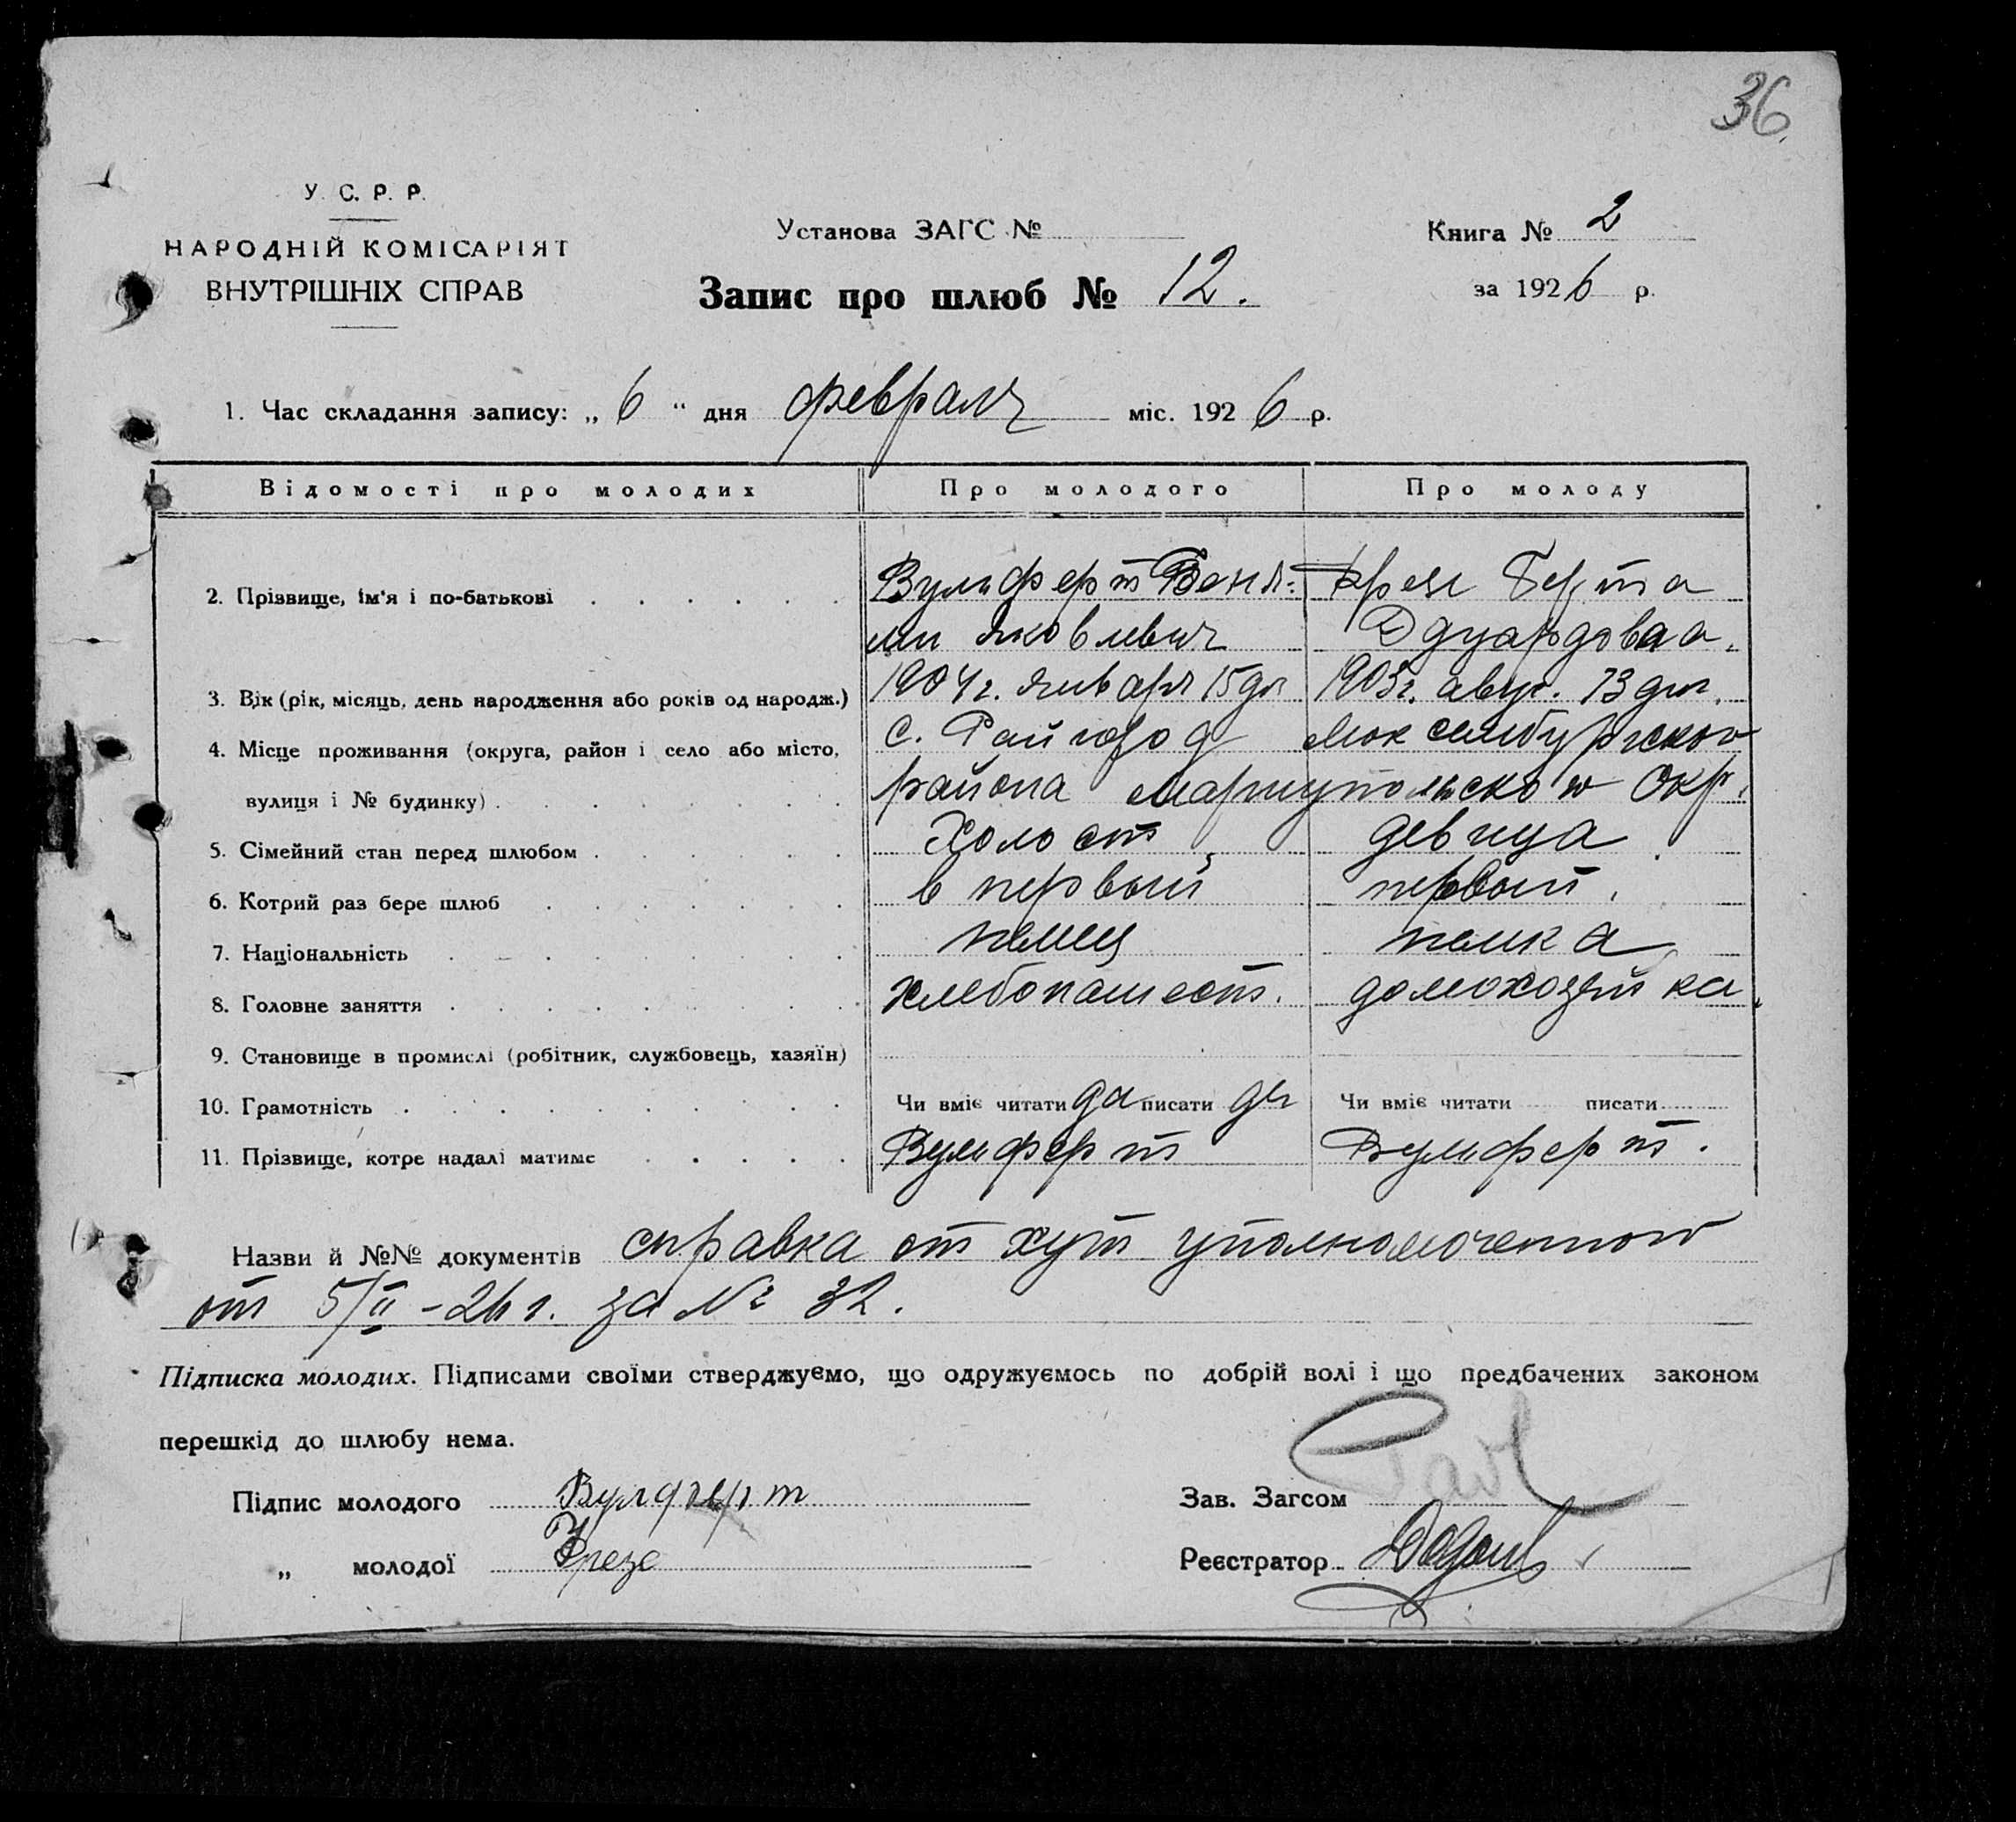 36.
У. С. Р. Р.
НАРОДНІЙ КОМІСАРІЯТ
ВНУТРІШНІХ СПРАВ
Установа ЗАГС №
Книга № 2
Запис про шлюб № 12.
за 1926 р.
1. Час складання запису: „ 6 “ дня февраля міс. 1926 р.
Відомості про молодих Про молодого Про молоду
2. Прізвище, ім'я і по-батькові Вульферт Веня- Берта
мин Яковлевич Эдуардовна.
3. Вік (рік, місяць, день народження або років од народж.) 1904 г. января 15 дня 1903 г. авгус. 13 дня.
4. Місце проживання (округа, район і село або місто, с. Райгород Люксембургского
вулиця і № будинку) района Мариупольского Окр.
5. Сімейний стан перед шлюбом Холост, девица.
6. Котрий раз бере шлюб в первый первый.
7. Національність немец немка
8. Головне заняття хлебопашест. домохозяйка.
9. Становище в промислі (робітник, службовець, хазяїн)
10. Грамотність Чи вміє читати да писати да Чи вміє читати писати
11. Прізвище, котре надалі матиме Вульферт Вульферт.
Назви й №№ документів справка от хут уполномоченного
от 5/II – 26 г. за № 32.
Підписка молодих. Підписами своїми стверджуємо, що одружуємось по добрій волі і що предбачених законом
перешкід до шлюбу нема.
Підпис молодого Вулферт
Зав. Загсом
„ молодої Фрезе
Реєстратор